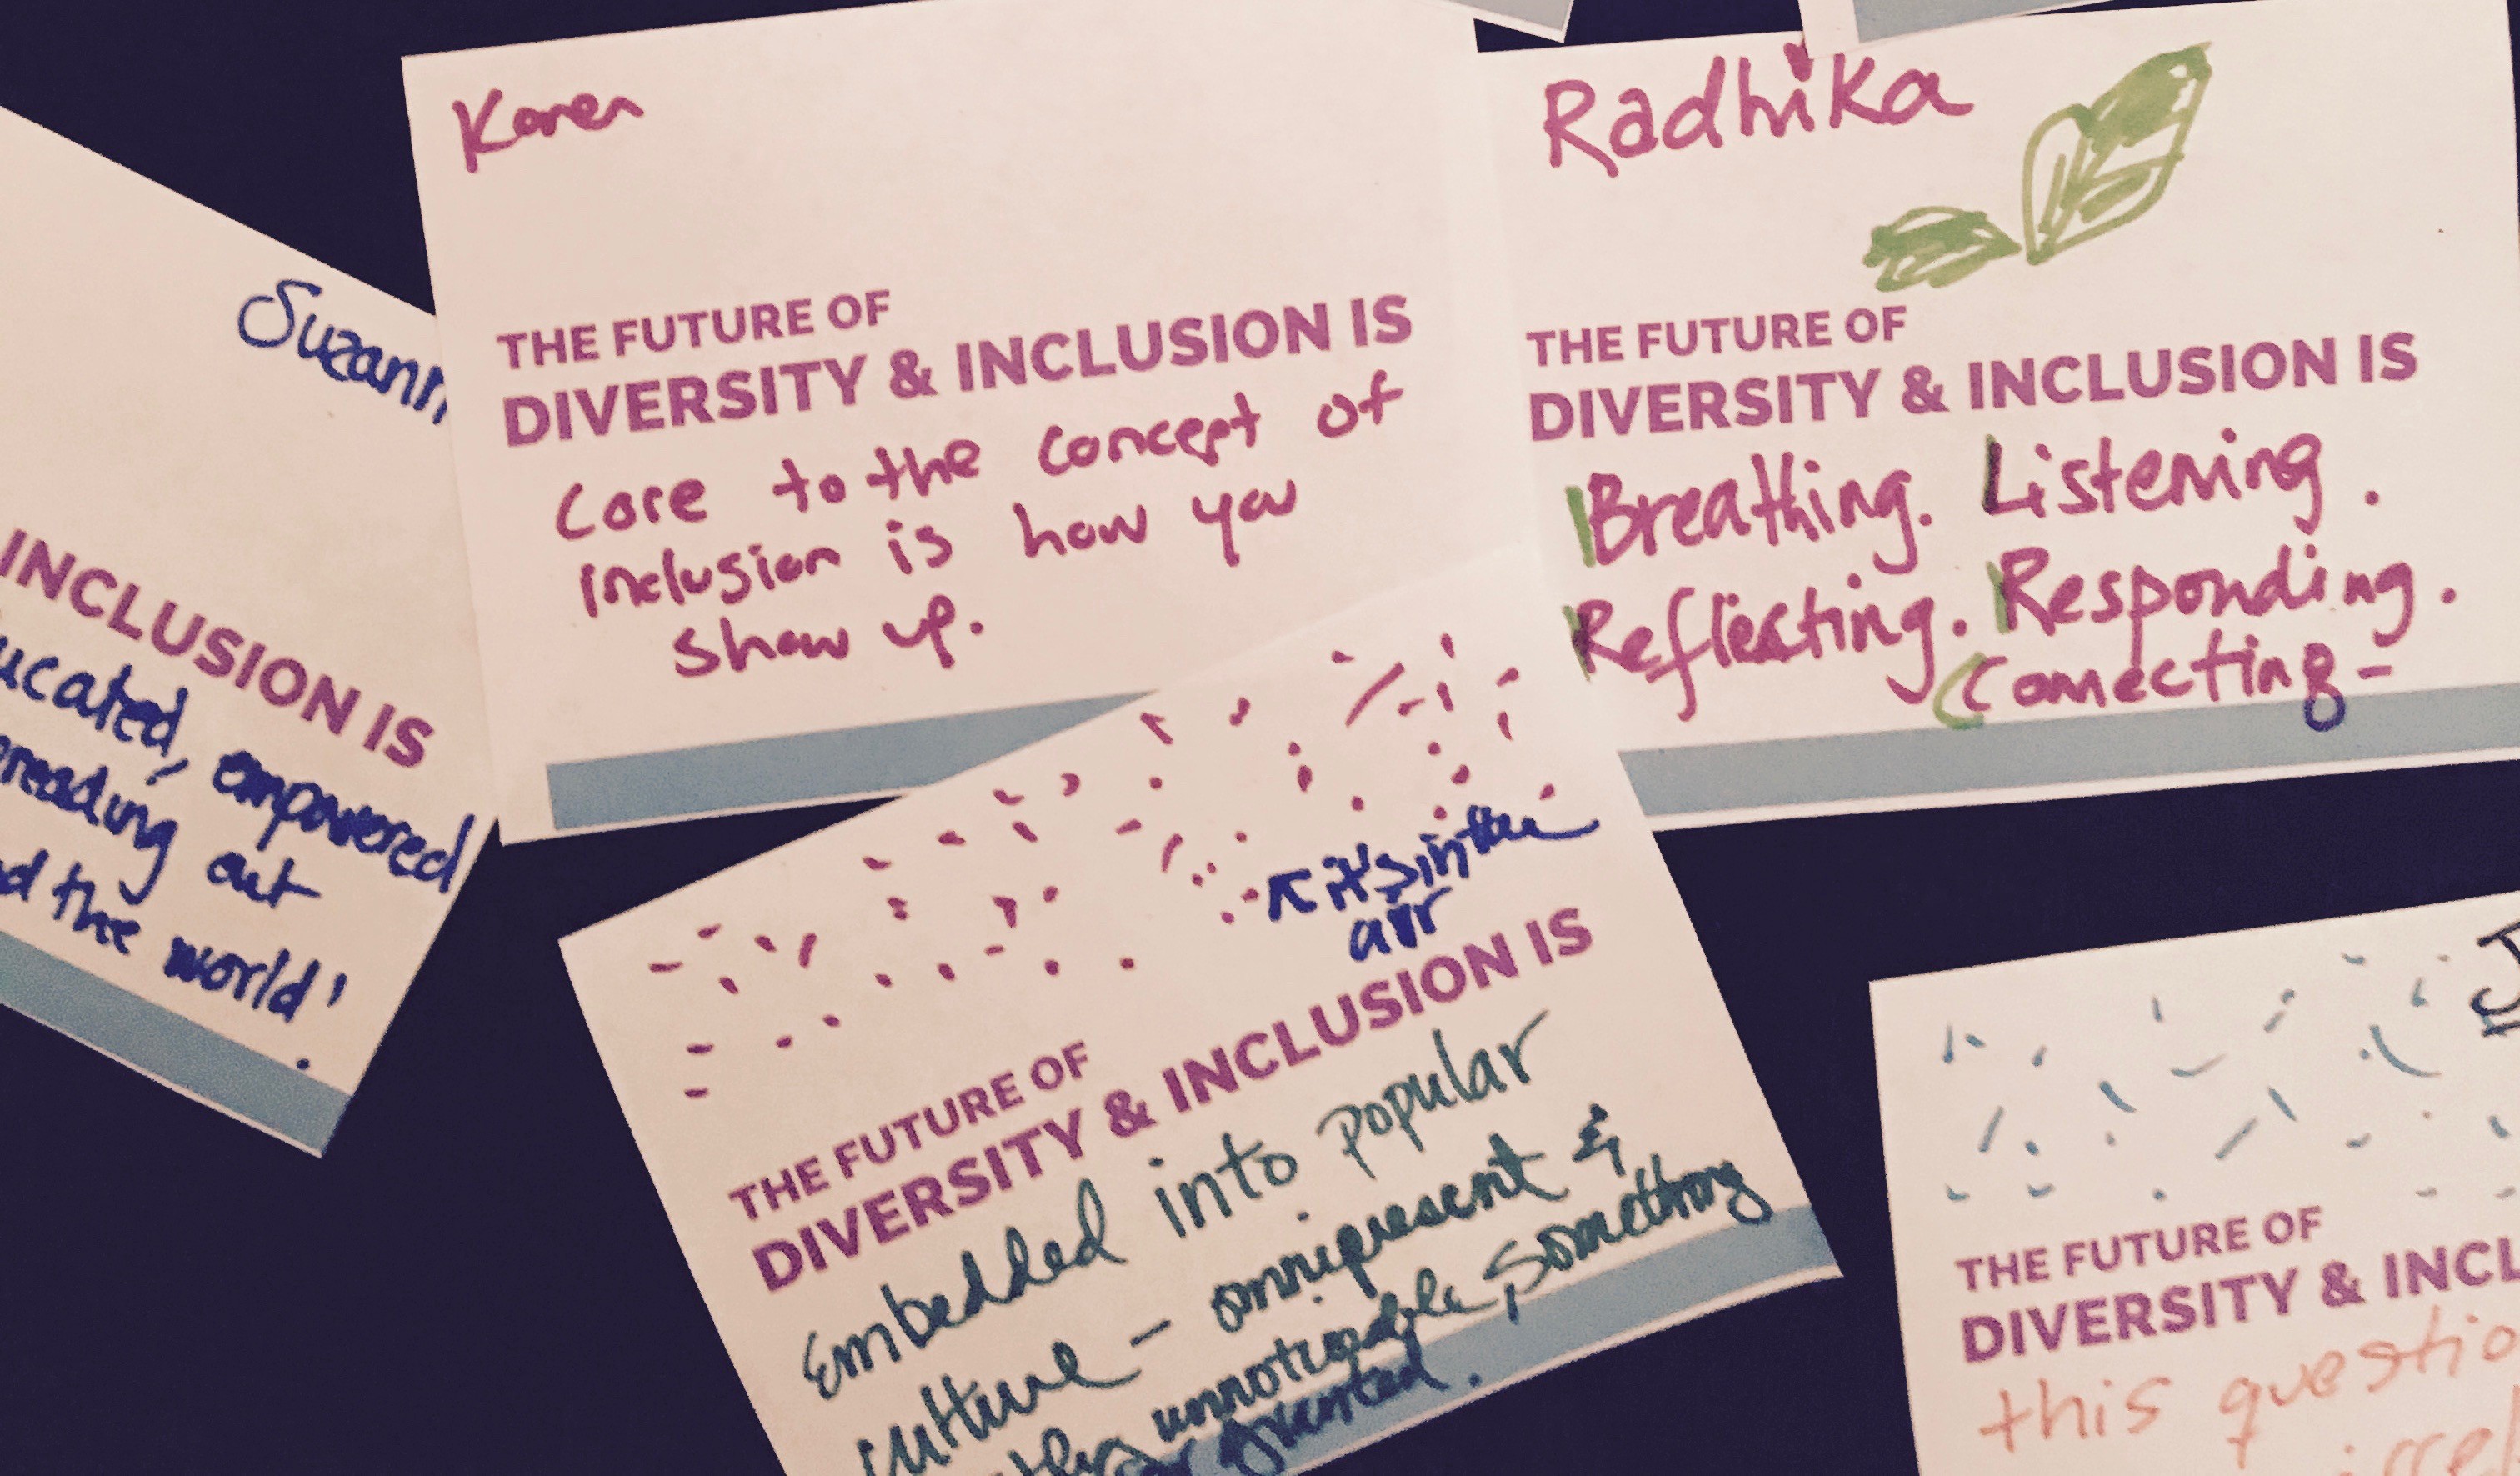 Suzann
INCLUSION IS
ucated, empowered
reading out
d the world'
Karen
THE FUTURE OF
DIVERSITY & INCLUSION IS
Core to the concept of
inclusion is how you
show up.
Radhika
THE FUTURE OF
DIVERSITY & INCLUSION IS
Breathing. Listening.
Reflecting. Responding.
Connecting-
it's in the
air
THE FUTURE OF
DIVERSITY & INCLUSION IS
Embedded into popular
culture - omnipresent &
unnoticeable, something
granted.
J
THE FUTURE OF
DIVERSITY & INCL
this questio
irrel